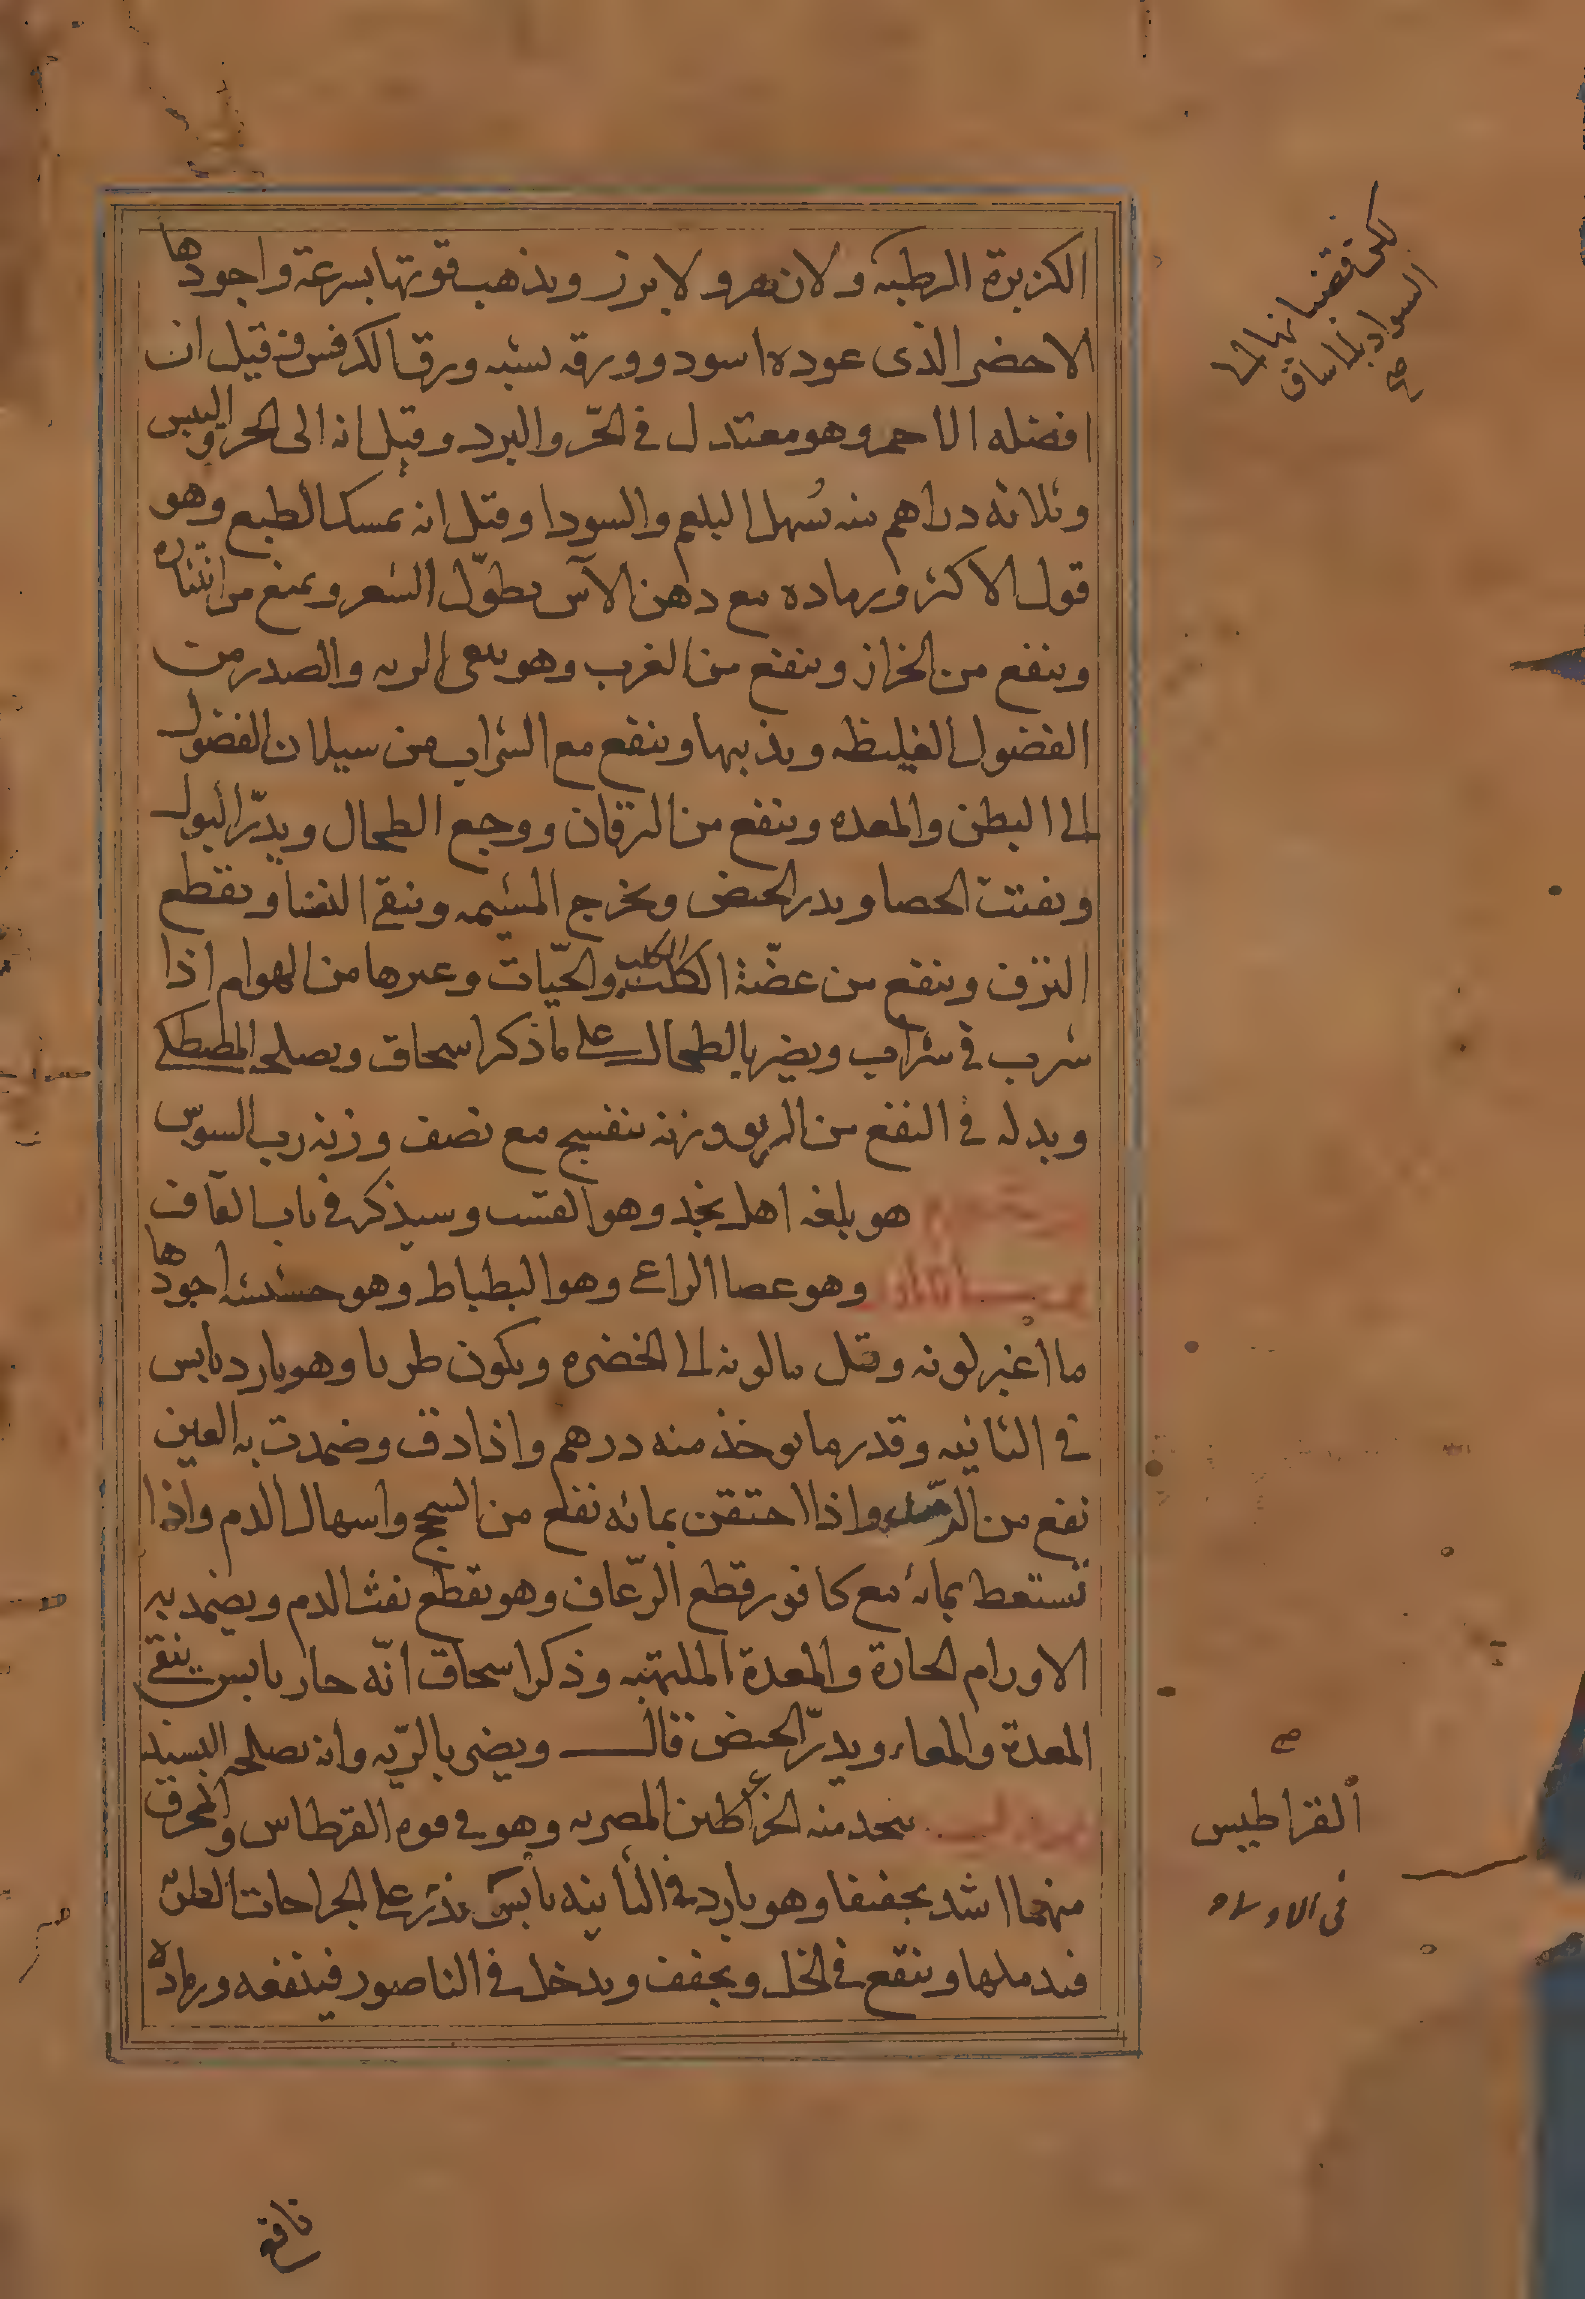 الكزبرة الرطبه ولا زهر ولا بزر ويذهب قوتها بسرعة واجودها
الاخضر الذى عوده اسود وورقه يشبه ورق الكرفس وقيل ان
افضله الاحمر وهو معتدل فى الحرّ والبرد وقيل انه الى الحر واليبس
وثلاثه دراهم منه يُسهل البلغم والسودا وقيل انه يمسك الطبع وهو
قول الاكثر ورماده مع دهن الآس يطوّل الشعر ويمنع من انتثاره
وينفع من الحزاز وينفع من الغرب وهو ينقى الريه والصدر من
الفضول الغليظه ويذيبها وينفع مع الشراب من سيلان الفضول
الى البطن والمعده وينفع من اليرقان ووجع الطحال ويدرّ البول
ويفتت الحصا ويدر الحيض ويخرج المشيمه وينقى النفسا ويقطع
النزف وينفع من عضّة الكلب الكلب والحيّات وغيرها من الهوام اذا
شرب فى شراب ويضر بالطحال على ما ذكر اسحاق ويصلحه المصطكى
وبدله فى النفع من الربو وزنه بنفسج مع نصف وزنه رب السوس
هو بلغه اهل نجد وهو القت وسيذكر فى باب القاف
وهو عصا الراعى وهو البطباط وهو حشيشه اجودها
ما اغبر لونه وقيل ما لونه الى الخضره ويكون طريا وهو بارد يابس
فى الثانيه وقدر ما يوخذ منه درهم واذا دق وضمدت به العين
نفع من الرمد واذا احتقن بمائه نفع من السحج واسهال الدم واذا
تستعط بمائه مع كافور قطع الرّعاف وهو يقطع نفث الدم ويضمد به
الاورام الحارة والمعدة الملتهبه وذكر اسحاق انّه حار يابس ينقى
المعدة والمعاء ويدرّ الحيض قال ويضر بالريّه وانه يصلحه
يتخذ منه المصريه وهو فى قوه القرطاس والمحرق
منهما اشد تجفيفا وهو بارد فى الثانيه يابس يذر على الجراحات الطريّه
فيدملها وينقع فى الخل ويجفف ويدخل فى الناصور فينفعه ورماده
لكن قضبانها الى
السواد بلا ساق
صح
صح
القراطيس
فى الاولى
نافع